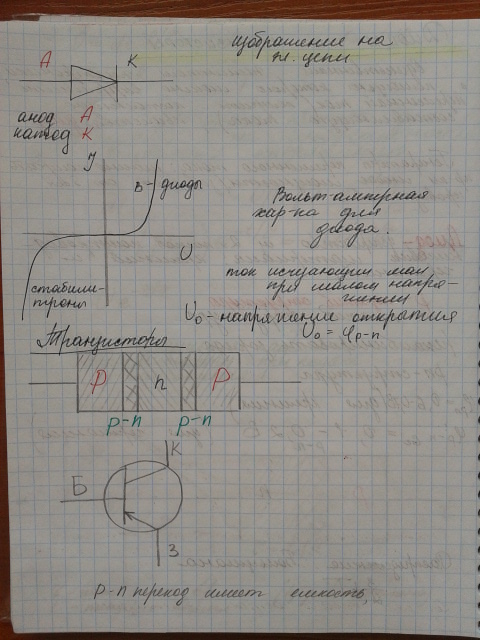 изображение на
эл. цепи
А К
анод А
катод К
J
В - диоды
U
Вольт-амперная
хар-ка для
диода.
стабили-
троны
ток исчезающий мал
при малом напря-
жении
U₀ - напряжение открытия
U₀ = φp-n
Транзисторы
p n p
p-n p-n
К
Б
Э
p-n переход имеет емкость,